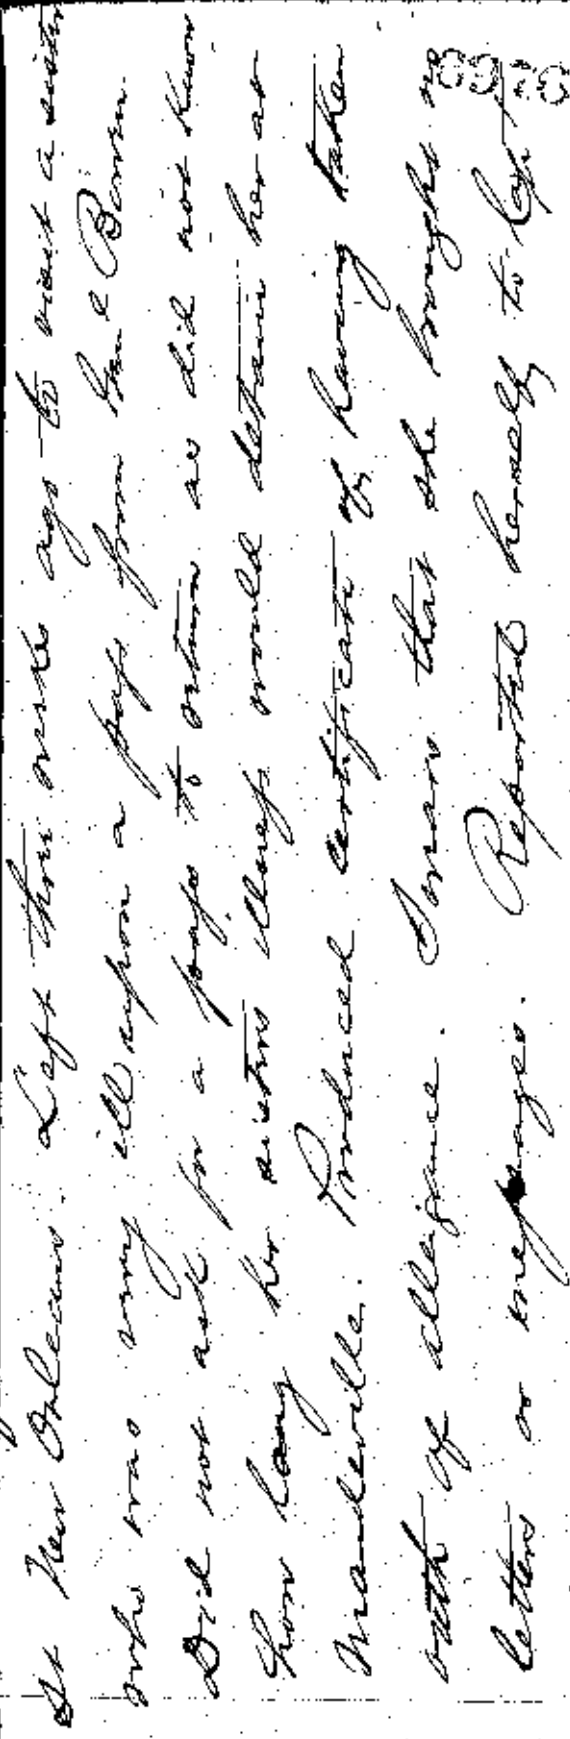 St New Orleans. Left three weeks ago to visit a sister
who was very ill upon a pass from Genl Bowen.
Did not ask for a pass to return as did not know
how long her sisters illness would detain her at
Mandeville. Produced certificate of having taken
oath of allegiance. Swears that she brought no
letters or messages. Reported herself to Capt